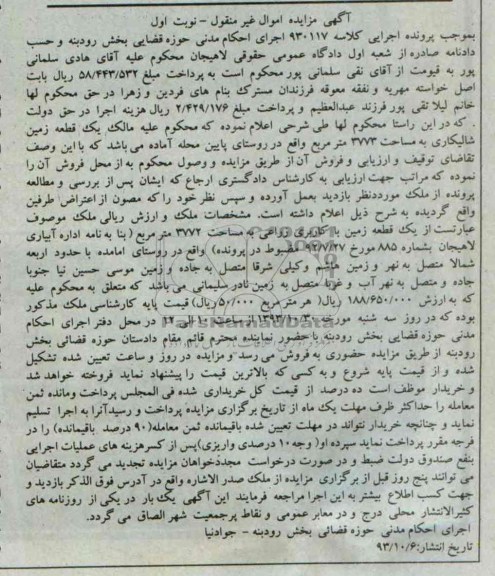 آگهی مزایده اموال غیر منقول - نوبت اول
بموجب پرونده اجرایی کلاسه ۹۳۰۱۱۷ اجرای احکام مدنی حوزه قضایی بخش رودبنه و حسب
دادنامه صادره از شعبه اول دادگاه عمومی حقوقی لاهیجان محکوم علیه آقای هادی سلمانی
پور به قیومت از آقای نقی سلمانی پور محکوم است به پرداخت مبلغ ۵۸/۴۴۳/۵۳۲ ریال بابت
اصل خواسته مهریه و نفقه معوقه فرزندان مشترک بنام های فردین و زهرا در حق محکوم لها
خانم لیلا تقی پور فرزند عبدالعظیم و پرداخت مبلغ ۲/۴۲۹/۱۷۶ ریال هزینه اجرا در حق دولت
. که در این راستا محکوم لها طی شرحی اعلام نموده که محکوم علیه مالک یک قطعه زمین
شالیکاری به مساحت ۳۷۷۳ متر مربع واقع در روستای پایین محله آماده می باشد که با این وصف
تقاضای توقیف و ارزیابی و فروش آن از طریق مزایده و وصول محکوم به از محل فروش آن را
نموده که مراتب جهت ارزیابی به کارشناس دادگستری ارجاع که ایشان پس از بررسی و مطالعه
پرونده از ملک موردنظر بازدید بعمل آورده و سپس نظر خود را که مصون از اعتراض طرفین
واقع گردیده به شرح ذیل اعلام داشته است. مشخصات ملک و ارزش ریالی ملک موصوف
عبارتست از یک قطعه زمین با کاربری زراعی به مساحت ۳۷۷۲ متر مربع ( بنا به نامه اداره آبیاری
لاهیجان بشماره ۸۸۵ مورخ ۹۲/۷/۲۷ مضبوط در پرونده) واقع در روستای امامده با حدود اربعه
شمالا متصل به نهر و زمین هشم وکیلی شرقا متصل به جاده و زمین موسی حسین نیا جنوبا
جاده و متصل به نهر آب و غربا متصل به زمین نادر سلیمانی می باشد که متعلق به محکوم علیه
که به ارزش ۱۸۸/۶۵۰/۰۰۰ ریال( هر متر مربع ۵۰/۰۰۰ ریال) قیمت پایه کارشناسی ملک مذکور
بوده که در روز سه شنبه مورخه ۱۳۹۳/۱۰/۳۰ از ساعت ۱۰ الی ۱۲ در محل دفتر اجرای احکام
مدنی حوزه قضایی بخش رودبنه با حضور نماینده محترم قائم مقام دادستان حوزه قضائی بخش
رودبنه از طریق مزایده حضوری به فروش می رسد و مزایده در روز و ساعت تعیین شده تشکیل
شده و از قیمت پایه شروع و به کسی که بالاترین قیمت را پیشنهاد نماید فروخته خواهد شد
و خریدار موظف است ده درصد از قیمت کل خریداری شده فی المجلس پرداخت ومانده ثمن
معامله را حداکثر ظرف مهلت یک ماه از تاریخ برگزاری مزایده پرداخت و رسید آنرا به اجرا تسلیم
نماید و چنانچه خریدار نتواند در مهلت تعیین شده باقیمانده ثمن معامله(۹۰ درصد باقیمانده) را در
فرجه مقرر پرداخت نماید سپرده او( وجه ۱۰ درصدی واریزی)پس از کسر هزینه های عملیات اجرایی
بنفع صندوق دولت ضبط و در صورت درخواست مجدد خواهان مزایده تجدید می گردد متقاضیان
می توانند پنج روز قبل از برگزاری مزایده از ملک صدر الاشاره واقع در آدرس فوق الذکر بازدید و
جهت کسب اطلاع بیشتر به این اجرا مراجعه فرمایند این آگهی یک بار در یکی از روزنامه های
کثیرالانتشار محلی درج و در معابر عمومی و نقاط پرجمعیت شهر الصاق می گردد.
اجرای احکام مدنی حوزه قضائی بخش رودبنه - جوادنیا
تاریخ انتشار:۹۳/۱۰/۶